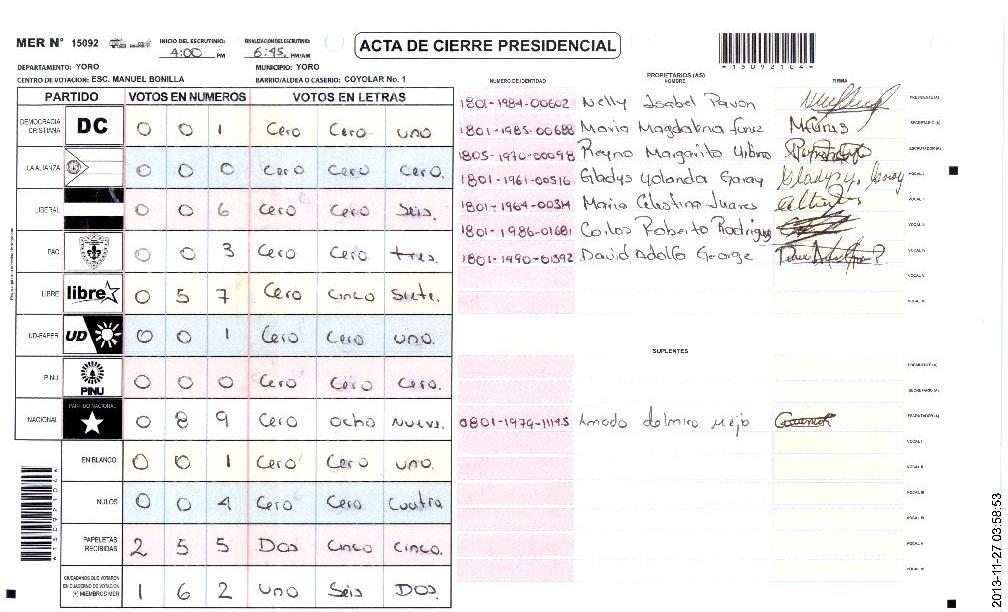 MER N° 15092 INICIO DEL ESCRUTINIO: 4:00 PM FINALIZACIÓN DEL ESCRUTINIO: 6:45 PM/AM
ACTA DE CIERRE PRESIDENCIAL
*15092104*
DEPARTAMENTO: YORO MUNICIPIO: YORO
CENTRO DE VOTACION: ESC. MANUEL BONILLA BARRIO/ALDEA O CASERIO: COYOLAR No. 1
PARTIDO VOTOS EN NUMEROS VOTOS EN LETRAS
DEMOCRACIA CRISTIANA DC 0 0 1 Cero Cero uno
LA ALIANZA 0 0 0 Cero Cero Cero.
LIBERAL 0 0 6 Cero Cero Seis.
PAC 0 0 3 Cero Cero tres.
LIBRE libre 0 5 7 Cero Cinco Siete.
UD-FAPER UD 0 0 1 Cero Cero uno.
PINU PINU 0 0 0 Cero Cero Cero.
NACIONAL PARTIDO NACIONAL 0 8 9 Cero Ocho Nueve.
EN BLANCO 0 0 1 Cero Cero uno.
NULOS 0 0 4 Cero Cero Cuatro
PAPELETAS RECIBIDAS 2 5 5 Dos Cinco Cinco.
CIUDADANOS QUE VOTARON EN CUADERNO DE VOTACION (+) MIEMBROS MER 1 6 2 uno Seis Dos
PROPIETARIOS (AS)
NUMERO DE IDENTIDAD NOMBRE FIRMA
1801-1984-00602 Nelly Isabel Pavon PRESIDENTE (A)
1801-1985-00688 Maria Magdalena funez MFunes SECRETARIO (A)
1805-1970-00098 Reyno Margarito ESCRUTADOR (A)
1801-1961-00516 Gladys Yolanda Garay Gladys y. Garay VOCAL I
1801-1964-00314 Maria Celestina Juares VOCAL II
1801-1986-01681 Carlos Roberto Rodriguez VOCAL III
1801-1990-01392 David Adolfo George VOCAL IV
VOCAL V
VOCAL VI
SUPLENTES
PRESIDENTE (A)
SECRETARIO (A)
0801-1979-11145 Amado dalmiro Mejo ESCRUTADOR (A)
VOCAL I
VOCAL II
VOCAL III
VOCAL IV
VOCAL V
VOCAL VI
2013-11-27 03:58:53